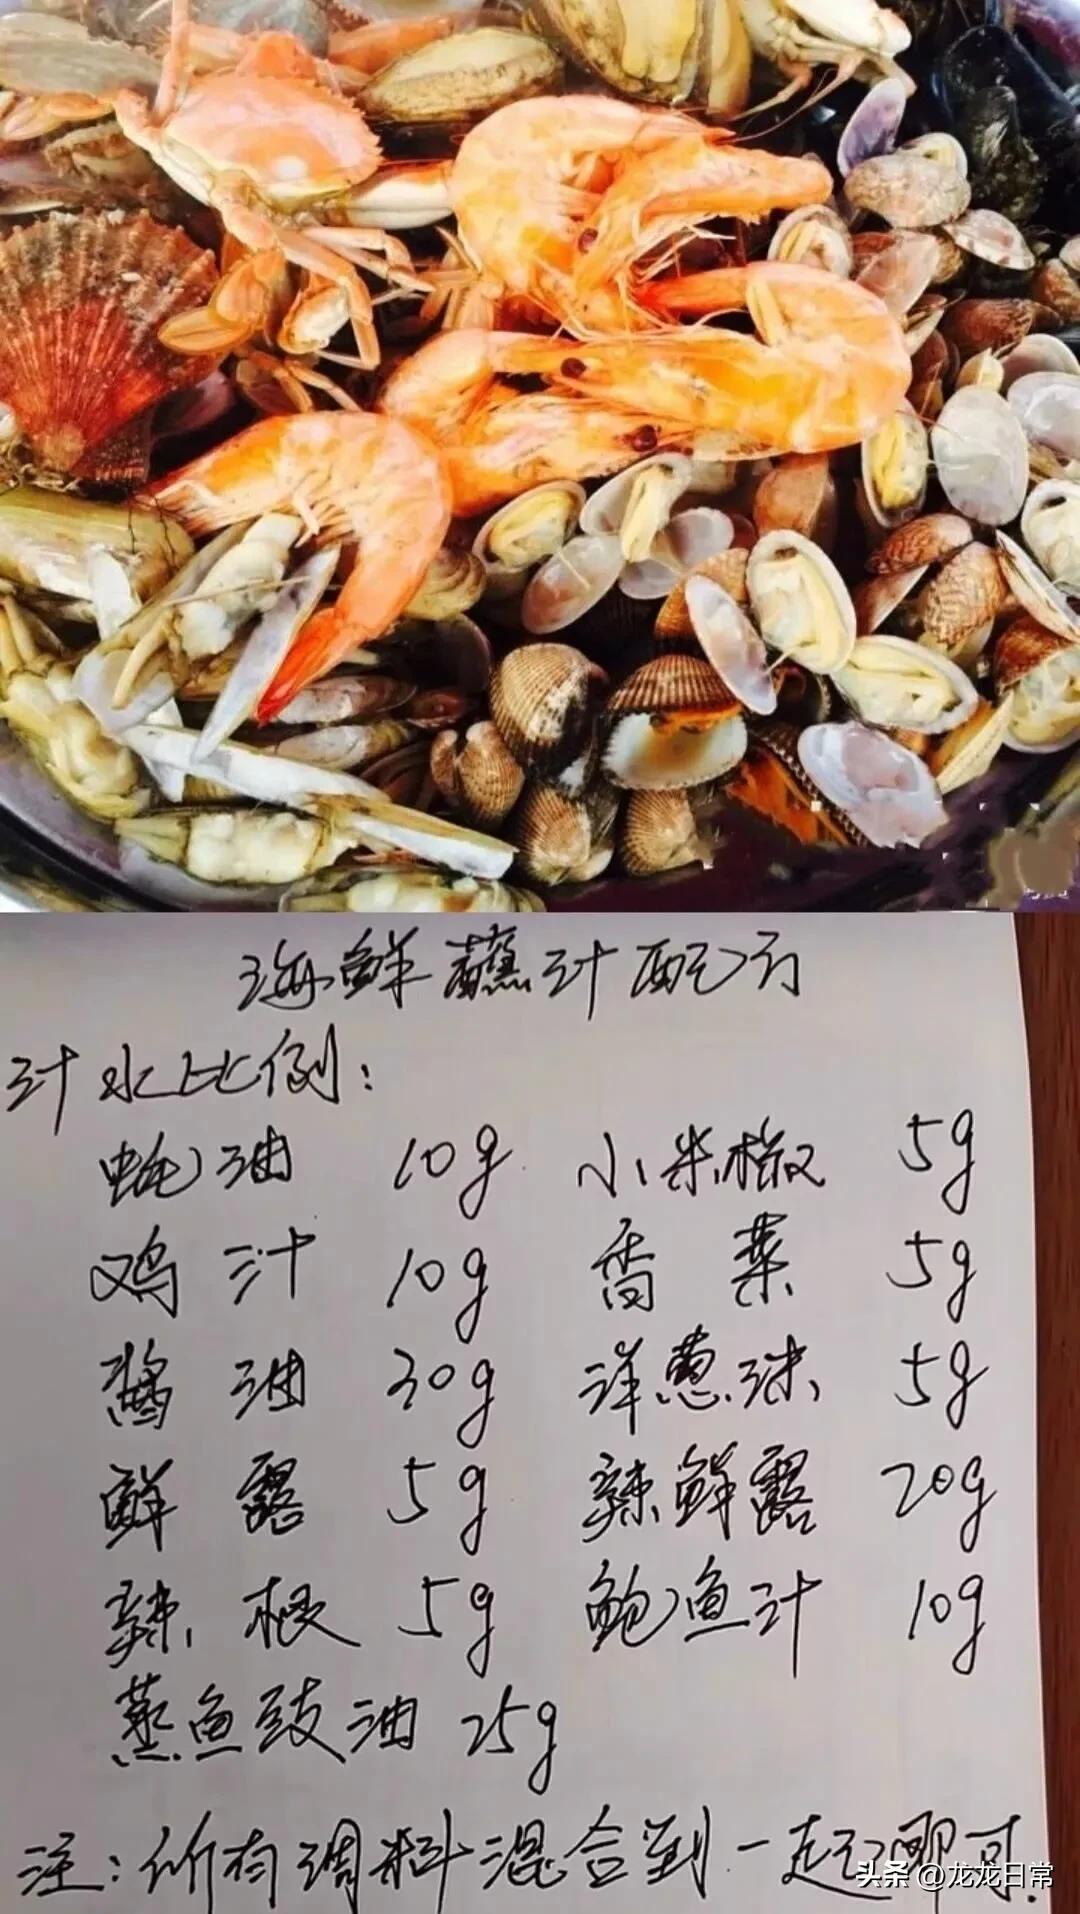 海鲜蘸汁配方
汁水比例:
蚝油 10g 小米椒 5g
鸡汁 10g 香菜 5g
酱油 30g 洋葱沫 5g
鲜露 5g 辣鲜露 20g
辣根 5g 鲍鱼汁 10g
蒸鱼豉油 25g
注:所有调料混合到一起即可.
头条 @龙龙日常